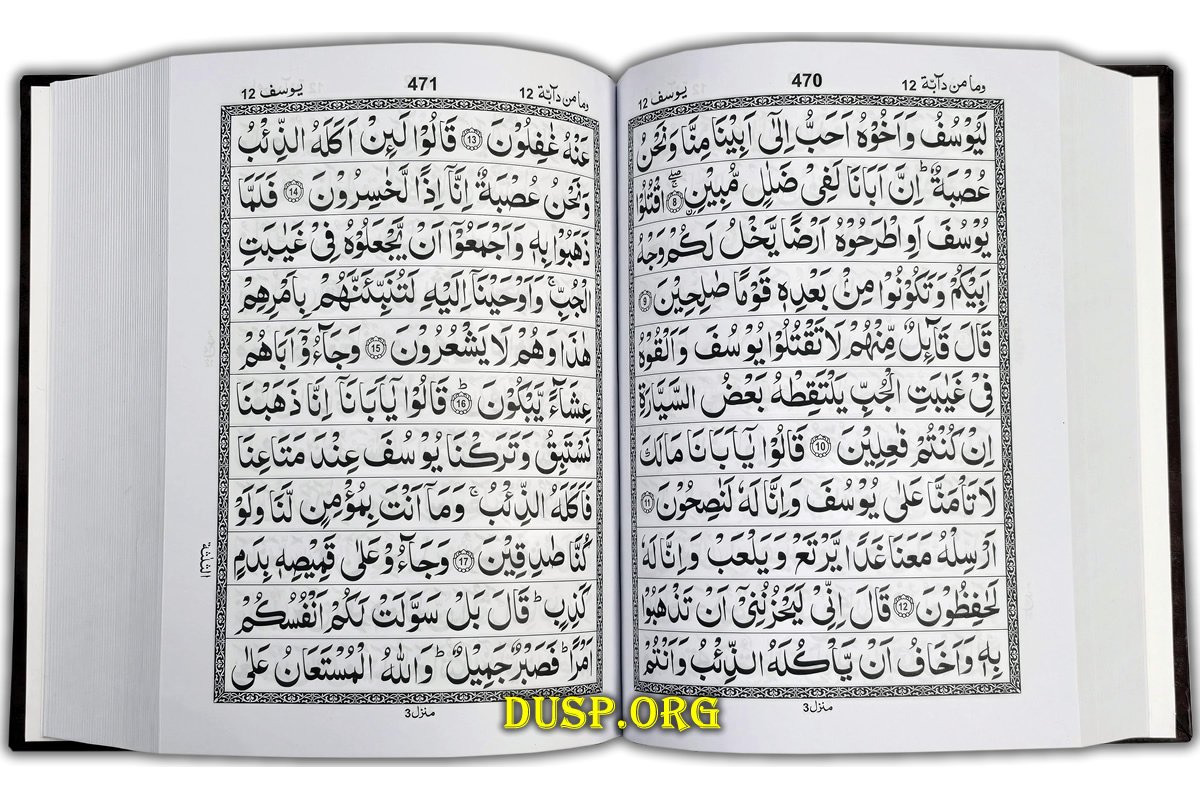 وما من دآبة 12
470
یوسف 12
لَیُوْسُفُ وَاَخُوْهُ اَحَبُّ اِلٰۤی اَبِیْنَا مِنَّا وَنَحْنُ
عُصْبَةٌ ؕ اِنَّ اَبَانَا لَفِیْ ضَلٰلٍ مُّبِیْنِ ۣۚۖ 8 اقْتُلُوْا
یُوْسُفَ اَوِ اطْرَحُوْهُ اَرْضًا یَّخْلُ لَكُمْ وَجْهُ
اَبِیْكُمْ وَتَكُوْنُوْا مِنْۢ بَعْدِهٖ قَوْمًا صٰلِحِیْنَ 9
قَالَ قَآئِلٌ مِّنْهُمْ لَا تَقْتُلُوْا یُوْسُفَ وَاَلْقُوْهُ
فِیْ غَیٰبَتِ الْجُبِّ یَلْتَقِطْهُ بَعْضُ السَّیَّارَةِ
اِنْ كُنْتُمْ فٰعِلِیْنَ 10 قَالُوْا یٰۤاَبَانَا مَالَكَ
لَا تَاْمَنَّا عَلٰی یُوْسُفَ وَاِنَّا لَهٗ لَنٰصِحُوْنَ 11
اَرْسِلْهُ مَعَنَا غَدًا یَّرْتَعْ وَیَلْعَبْ وَاِنَّا لَهٗ
لَحٰفِظُوْنَ 12 قَالَ اِنِّیْ لَیَحْزُنُنِیْۤ اَنْ تَذْهَبُوْا
بِهٖ وَاَخَافُ اَنْ یَّاْكُلَهُ الذِّئْبُ وَاَنْتُمْ
منزل 3
وما من دآبة 12
471
یوسف 12
عَنْهُ غٰفِلُوْنَ 13 قَالُوْا لَئِنْ اَكَلَهُ الذِّئْبُ
وَنَحْنُ عُصْبَةٌ اِنَّاۤ اِذًا لَّخٰسِرُوْنَ 14 فَلَمَّا
ذَهَبُوْا بِهٖ وَاَجْمَعُوْۤا اَنْ یَّجْعَلُوْهُ فِیْ غَیٰبَتِ
الْجُبِّ ۚ وَاَوْحَیْنَاۤ اِلَیْهِ لَتُنَبِّئَنَّهُمْ بِاَمْرِهِمْ
هٰذَا وَهُمْ لَا یَشْعُرُوْنَ 15 وَجَآءُوْۤ اَبَاهُمْ
عِشَآءً یَّبْكُوْنَ ؕ 16 قَالُوْا یٰۤاَبَانَاۤ اِنَّا ذَهَبْنَا
نَسْتَبِقُ وَتَرَكْنَا یُوْسُفَ عِنْدَ مَتَاعِنَا
فَاَكَلَهُ الذِّئْبُ ۚ وَمَاۤ اَنْتَ بِمُؤْمِنٍ لَّنَا وَلَوْ
كُنَّا صٰدِقِیْنَ 17 وَجَآءُوْ عَلٰی قَمِیْصِهٖ بِدَمٍ
كَذِبٍ ؕ قَالَ بَلْ سَوَّلَتْ لَكُمْ اَنْفُسُكُمْ
اَمْرًا ؕ فَصَبْرٌ جَمِیْلٌ ؕ وَاللّٰهُ الْمُسْتَعَانُ عَلٰی
الثلثة
منزل 3
DUSP.ORG